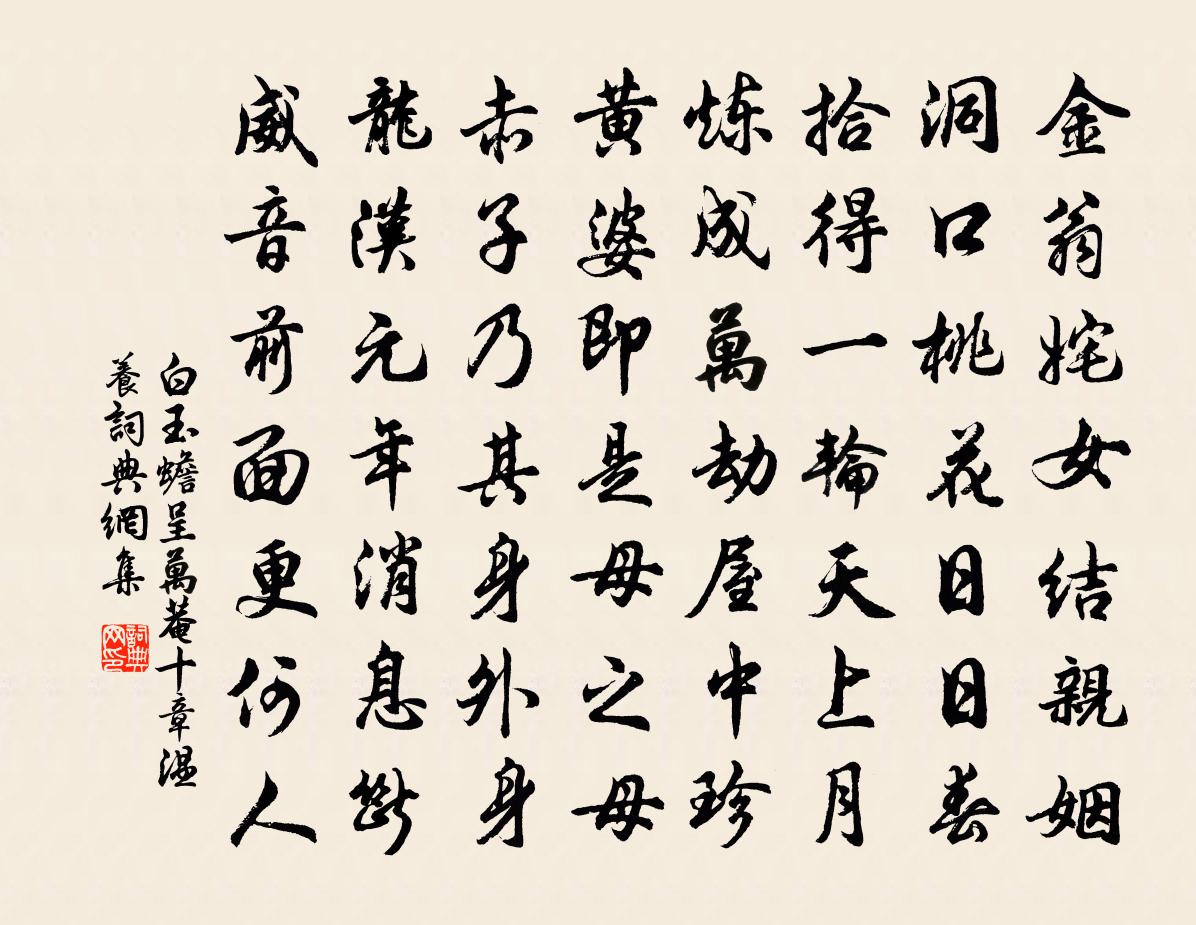 金翁姹女結親姻
洞口桃花日日春
拾得一輪天上月
炼成萬劫屋中珍
黃婆即是母之母
赤子乃其身外身
龍漢元年消息斷
威音前面更何人
白玉蟾呈萬菴十章溫
養詞典網集
詞典网印